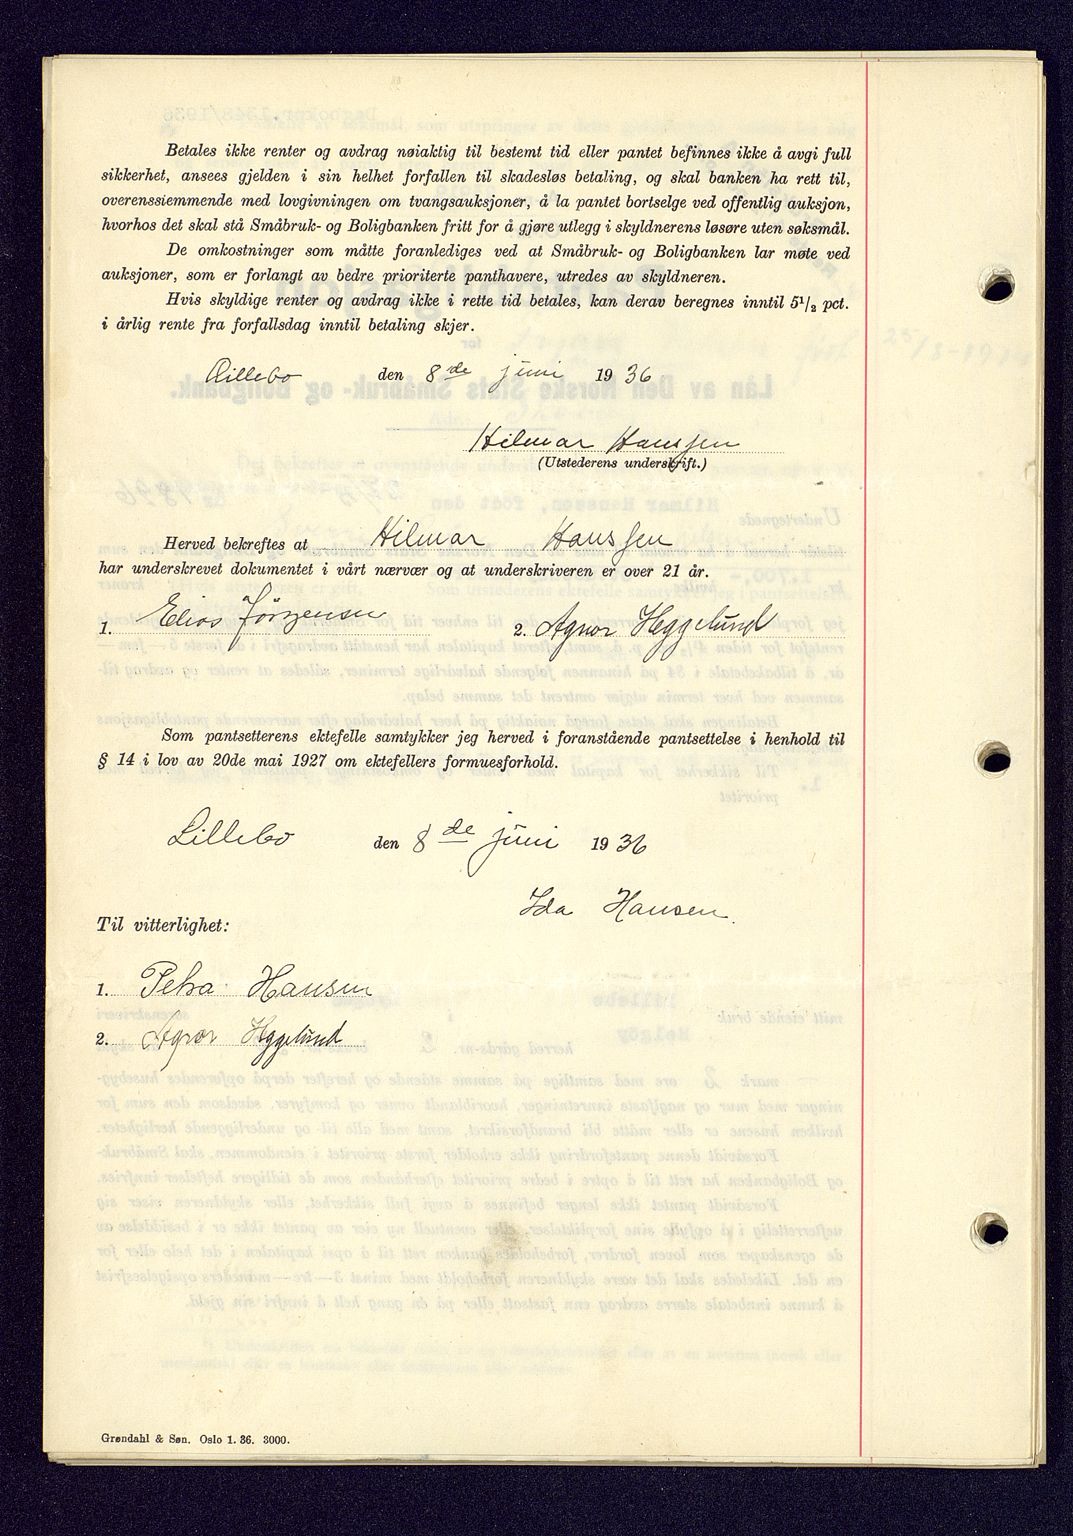 Betales ikke renter og avdrag nøiaktig til bestemt tid eller pantet befinnes ikke å avgi full
sikkerhet, ansees gjelden i sin helhet forfallen til skadesløs betaling, og skal banken ha rett til,
overenssiemmende med lovgivningen om tvangsauksjoner, å la pantet bortselge ved offentlig auksjon,
hvorhos det skal stå Småbruk- og Boligbanken fritt for å gjøre utlegg i skyldnerens løsøre uten søksmål.
De omkostninger som måtte foranlediges ved at Småbruk- og Boligbanken lar møte ved
auksjoner, som er forlangt av bedre prioriterte panthavere, utredes av skyldneren.
Hvis skyldige renter og avdrag ikke i rette tid betales, kan derav beregnes inntil 5 1/2 pct.
i årlig rente fra forfallsdag inntil betaling skjer.
Lillebo den 8de juni 1936
Hilmar Hanssen
(Utstederens underskrift.)
Herved bekreftes at Hilmar Hanssen
har underskrevet dokumentet i vårt nærvær og at underskriveren er over 21 år.
1. Elias Jørgensen 2. Agnar Heggelund
Som pantsetterens ektefelle samtykker jeg herved i foranstående pantsettelse i henhold til
§ 14 i lov av 20de mai 1927 om ektefellers formuesforhold.
Lillebo den 8de juni 1936
Ida Hansen.
Til vitterlighet:
1. Petra Hansen
2. Agnar Heggelund
Grøndahl & Søn. Oslo 1. 36. 3000.